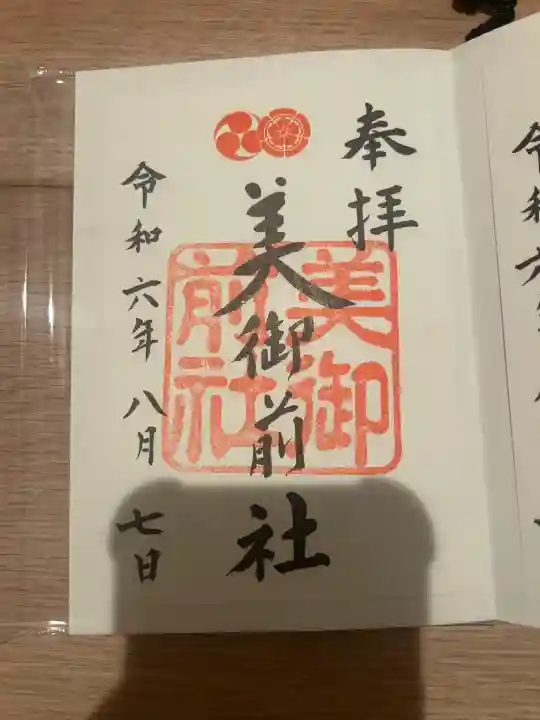 奉拝
美御前社
美御
前社
令和六年八月七日
令和六年八